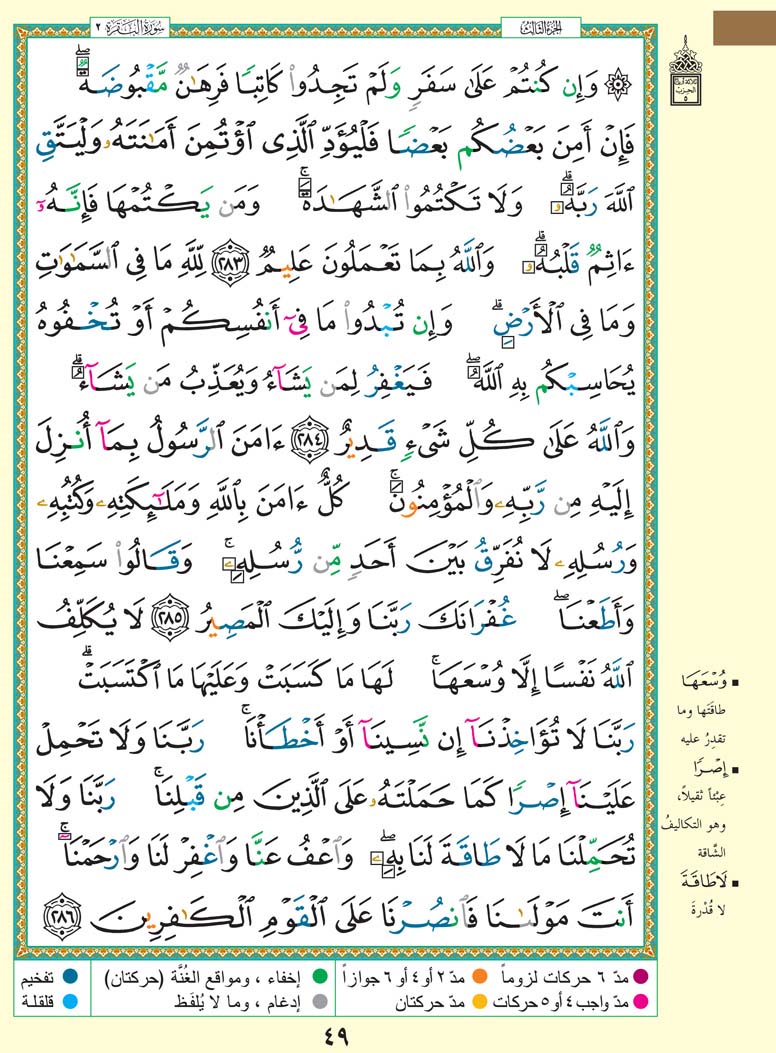 سُورَةُ البَقَرَة ٢
الجُزءُ الثَّالِثُ
۞ وَإِن كُنتُمْ عَلَىٰ سَفَرٍ وَلَمْ تَجِدُوا۟ كَاتِبًا فَرِهَٰنٌ مَّقْبُوضَةٌ ۖ
فَإِنْ أَمِنَ بَعْضُكُم بَعْضًا فَلْيُؤَدِّ ٱلَّذِى ٱؤْتُمِنَ أَمَٰنَتَهُۥ وَلْيَتَّقِ
ٱللَّهَ رَبَّهُۥ ۗ وَلَا تَكْتُمُوا۟ ٱلشَّهَٰدَةَ ۚ وَمَن يَكْتُمْهَا فَإِنَّهُۥٓ
ءَاثِمٌ قَلْبُهُۥ ۗ وَٱللَّهُ بِمَا تَعْمَلُونَ عَلِيمٌ ٢٨٣ لِّلَّهِ مَا فِى ٱلسَّمَٰوَٰتِ
وَمَا فِى ٱلْأَرْضِ ۗ وَإِن تُبْدُوا۟ مَا فِىٓ أَنفُسِكُمْ أَوْ تُخْفُوهُ
يُحَاسِبْكُم بِهِ ٱللَّهُ ۖ فَيَغْفِرُ لِمَن يَشَآءُ وَيُعَذِّبُ مَن يَشَآءُ ۗ
وَٱللَّهُ عَلَىٰ كُلِّ شَىْءٍ قَدِيرٌ ٢٨٤ ءَامَنَ ٱلرَّسُولُ بِمَآ أُنزِلَ
إِلَيْهِ مِن رَّبِّهِۦ وَٱلْمُؤْمِنُونَ ۚ كُلٌّ ءَامَنَ بِٱللَّهِ وَمَلَٰٓئِكَتِهِۦ وَكُتُبِهِۦ
وَرُسُلِهِۦ لَا نُفَرِّقُ بَيْنَ أَحَدٍ مِّن رُّسُلِهِۦ ۚ وَقَالُوا۟ سَمِعْنَا
وَأَطَعْنَا ۖ غُفْرَانَكَ رَبَّنَا وَإِلَيْكَ ٱلْمَصِيرُ ٢٨٥ لَا يُكَلِّفُ
ٱللَّهُ نَفْسًا إِلَّا وُسْعَهَا ۚ لَهَا مَا كَسَبَتْ وَعَلَيْهَا مَا ٱكْتَسَبَتْ ۗ
رَبَّنَا لَا تُؤَاخِذْنَآ إِن نَّسِينَآ أَوْ أَخْطَأْنَا ۚ رَبَّنَا وَلَا تَحْمِلْ
عَلَيْنَآ إِصْرًا كَمَا حَمَلْتَهُۥ عَلَى ٱلَّذِينَ مِن قَبْلِنَا ۚ رَبَّنَا وَلَا
تُحَمِّلْنَا مَا لَا طَاقَةَ لَنَا بِهِۦ ۖ وَٱعْفُ عَنَّا وَٱغْفِرْ لَنَا وَٱرْحَمْنَآ ۚ
أَنتَ مَوْلَىٰنَا فَٱنصُرْنَا عَلَى ٱلْقَوْمِ ٱلْكَٰفِرِينَ ٢٨٦
▪ وُسْعَهَا
طاقَتَها وما
تقدِرُ عليه
▪ إِصْرًا
عِبْئاً ثَقيلاً،
وهو التكاليفُ
الشَّاقة
▪ لَا طَاقَةَ
لا قُدْرةَ
مدّ ٦ حركات لزوماً
مدّ ٢ أو ٤ أو ٦ جوازاً
إخفاء ، ومواقع الغُنَّة (حركتان)
تفخيم
مدّ واجب ٤ أو ٥ حركات
مدّ حركتان
إدغام ، وما لا يُلفَظ
قلقلة
٤٩